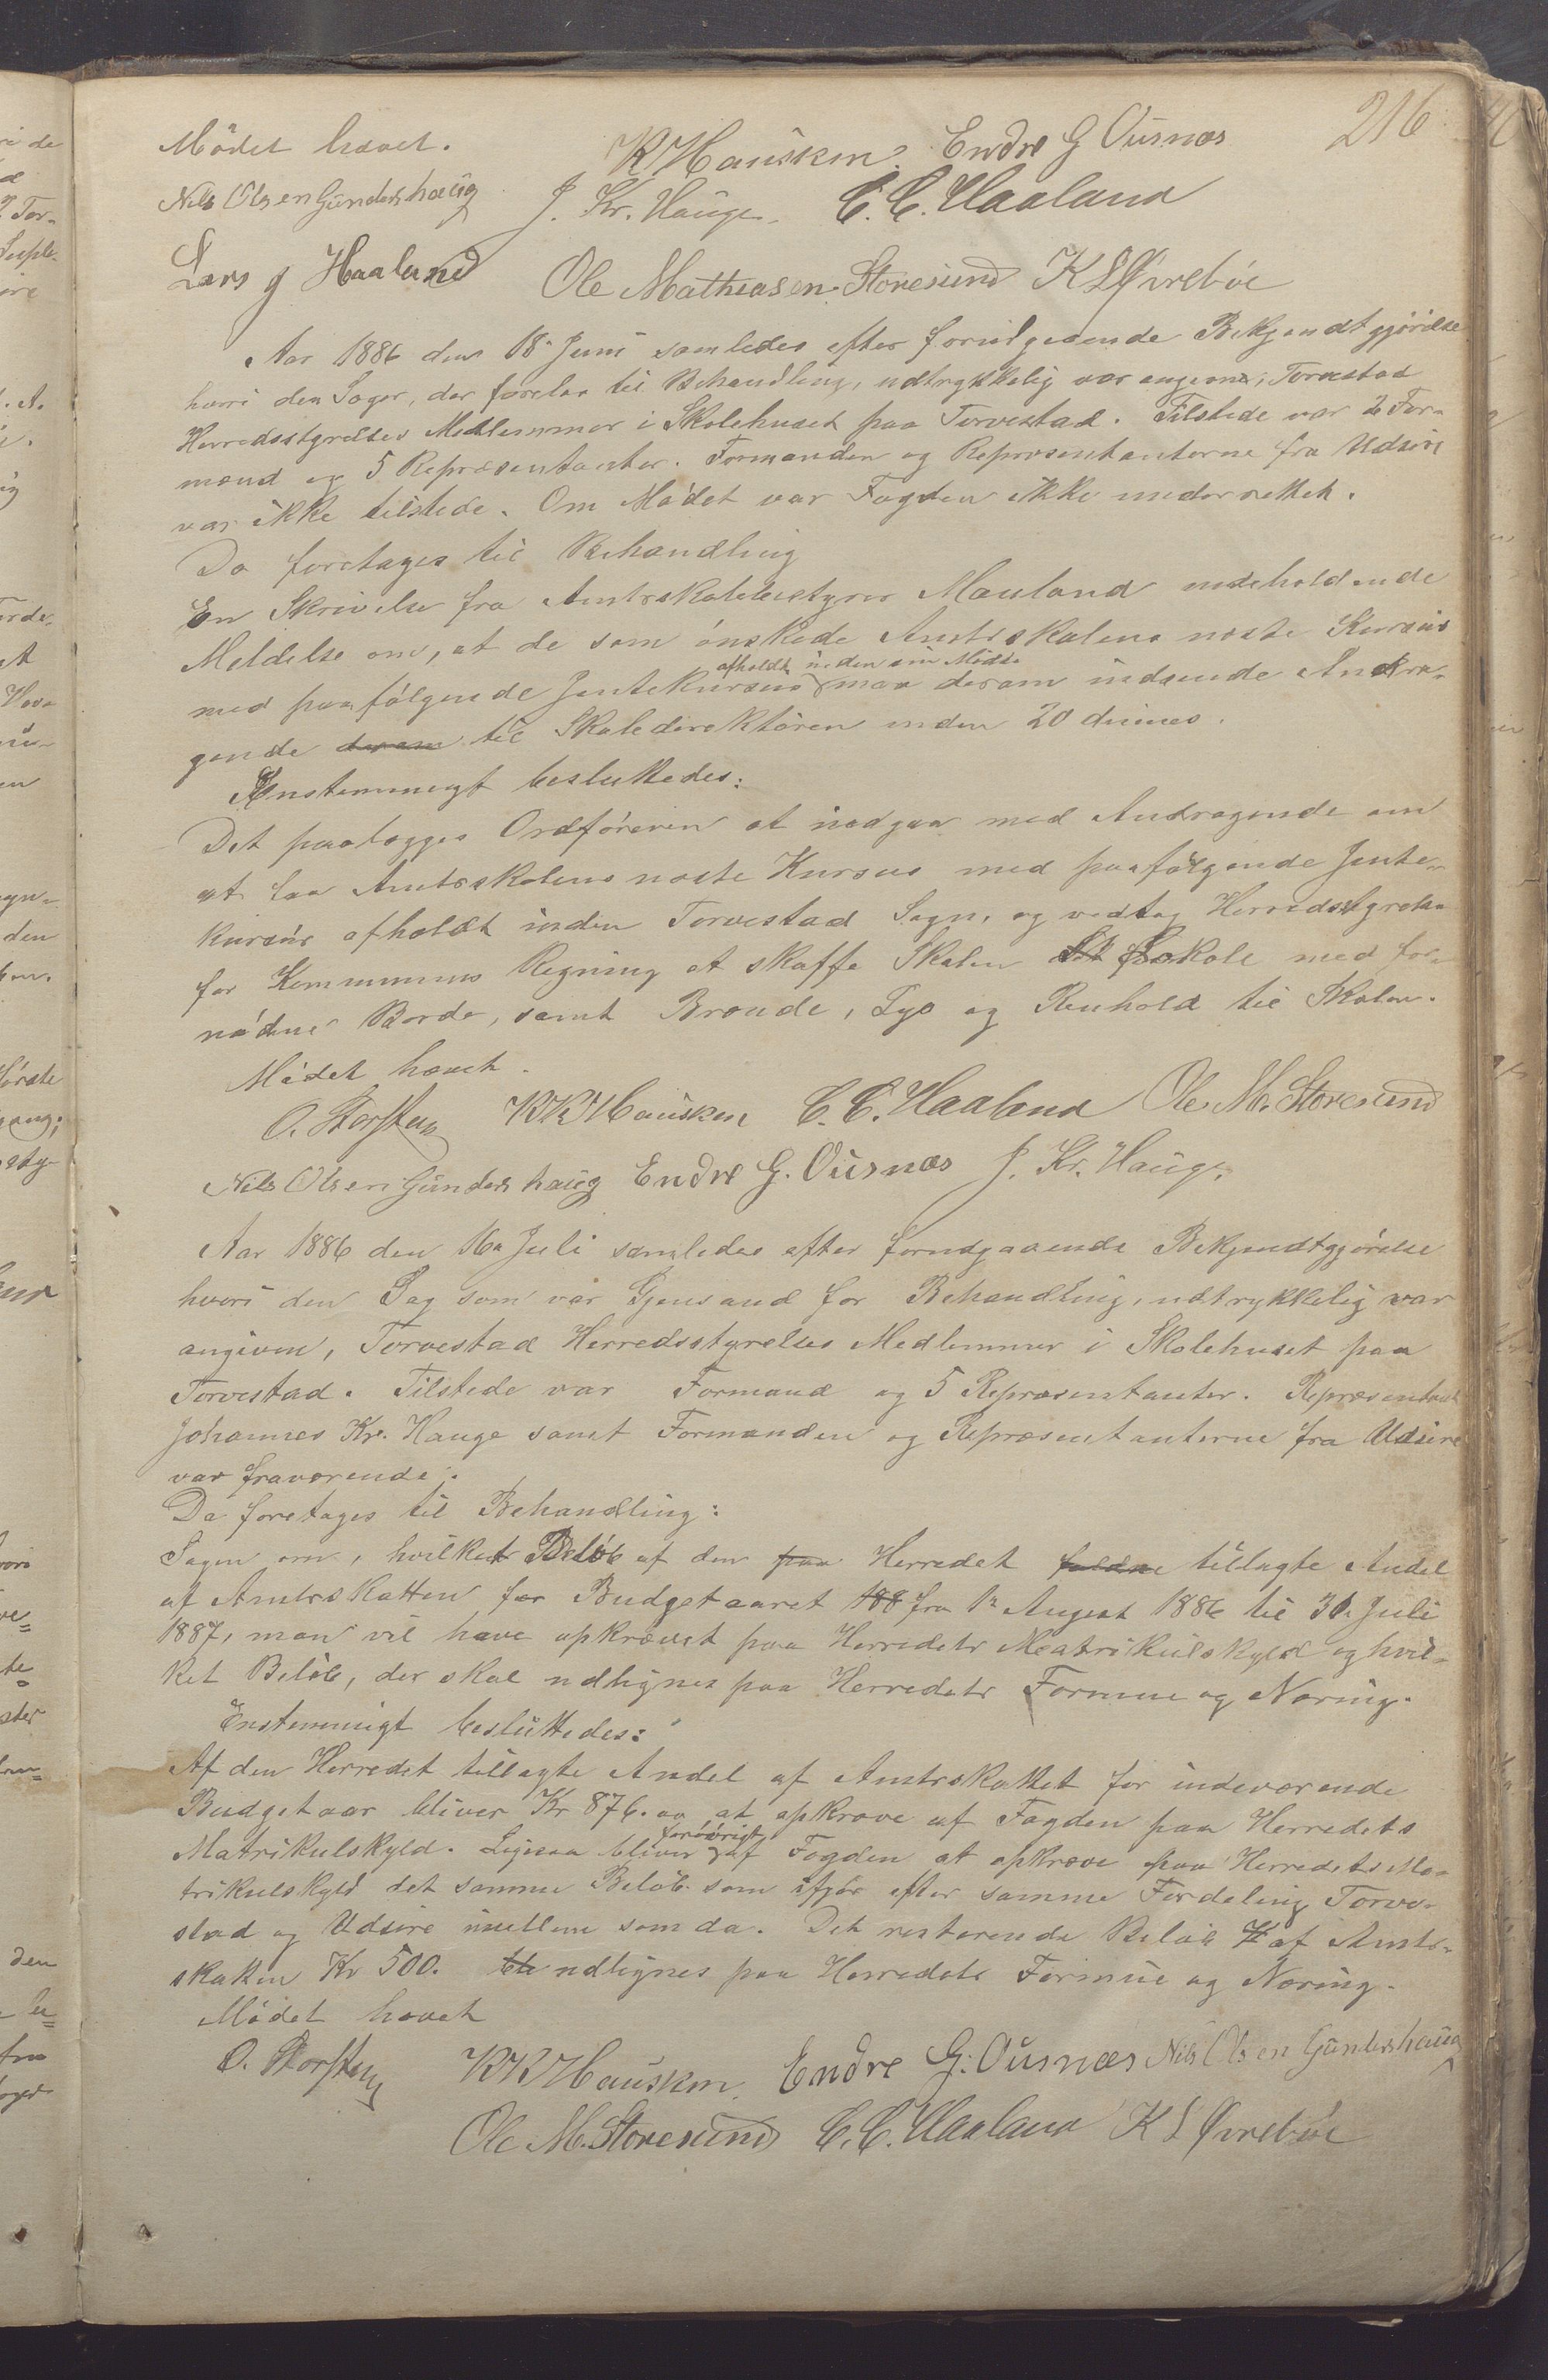 216
Mödet hævet. KKHausken. Endre G Ousnæs
Nils Olsen Gunders haug J. Kr. Hauge. C. C. Haaland
Lars g Haaland Ole Mathiasen Storesund K L Øvrebøe
Aar 1886 den 18de Juni samledes efter forudgaaende Bekjendtgjörelse
hvori den Sager, der forelaa til Behandling, udtrykkelig var angivne, Torvestad
Herredsstyrelses Medlemmer i Skolehuset paa Torvestad. Tilstede var 2 For-
mænd og 5 Repræsentanter. Formanden og Repræsentanterne fra Udsire
var ikke tilstede. Om Mödet var Fogden ikke underrettet.
Da foretages til Behandling
En Skrivelse fra Amtsskolebestyrer Mauland indeholdende
Meldelse om, at de som önskede Amtsskolens næste Kursus
afholdt inden sin Midte
med paafölgende Jentekursus maa derom indsende Andra-
gende derom til Skoledirektören inden 20 dennes.
Enstemmigt besluttedes:
Det paalægges Ordföreren at indgaa med Andragende om
at faa Amtsskolens næste Kursus med paafölgende Jente-
kursus afholdt inden Torvestad Sogn, og vedtog Herredsstyrelsen
for Kommunens Regning at skaffe Skolen Lokale med for-
nödne Borde, samt Brænde, Lys og Renhold til Skolen.
Mödet hævet.
O. Storsten KKHausken C. C. Haaland Ole M. Storesund
Nils Olsen Gunders haug Endre G. Ousnæs J. Kr. Hauge.
Aar 1886 den 16de Juli samledes efter forudgaaende Bekjendtgjörelse
hvori den Sag som var Gjenstand for Behandling, udtrykkelig var
angiven, Torvestad Herredsstyrelses Medlemmer i Skolehuset paa
Torvestad. Tilstede var Formænd og 5 Repræsentanter. Repræsentant
Johannes Kr. Hauge samt Formanden og Repræsentanterne fra Udsire
var fraværende.
Da foretages til Behandling:
Sagen om, hvilket Belöb af den paa Herredet faldne tillagte Andel
af Amtsskatten for Budgetaaret 188 fra 1ste August 1886 til 31te Juli
1887, man vil have opkrævet paa Herredets Matrikulskyld og hvil-
ket Belöb, der skal udlignes paa Herredets Formue og Næring.
Enstemmigt besluttedes:
Af den Herredet tillagte Andel af Amtsskattet for indeværende
Budgetaar bliver Kr 876.00 at opkræve af Fogden paa Herredets
forövrigt
Matrikulskyld. Ligesaa bliver af Fogden at opkræve paa Herredets Ma-
trikulskyld det samme Belöb som ifjor efter samme Fordeling Torve-
stad og Udsire imellem som da. Det resterende Belöb af Amts-
skatten Kr 500. udlignes paa Herredets Formue og Næring.
Mödet hævet
O. Storsten KKHausken. Endre G. Ousnæs Nils Olsen Gunders haug
Ole M. Storesund C. C. Haaland K L Øvrebøe